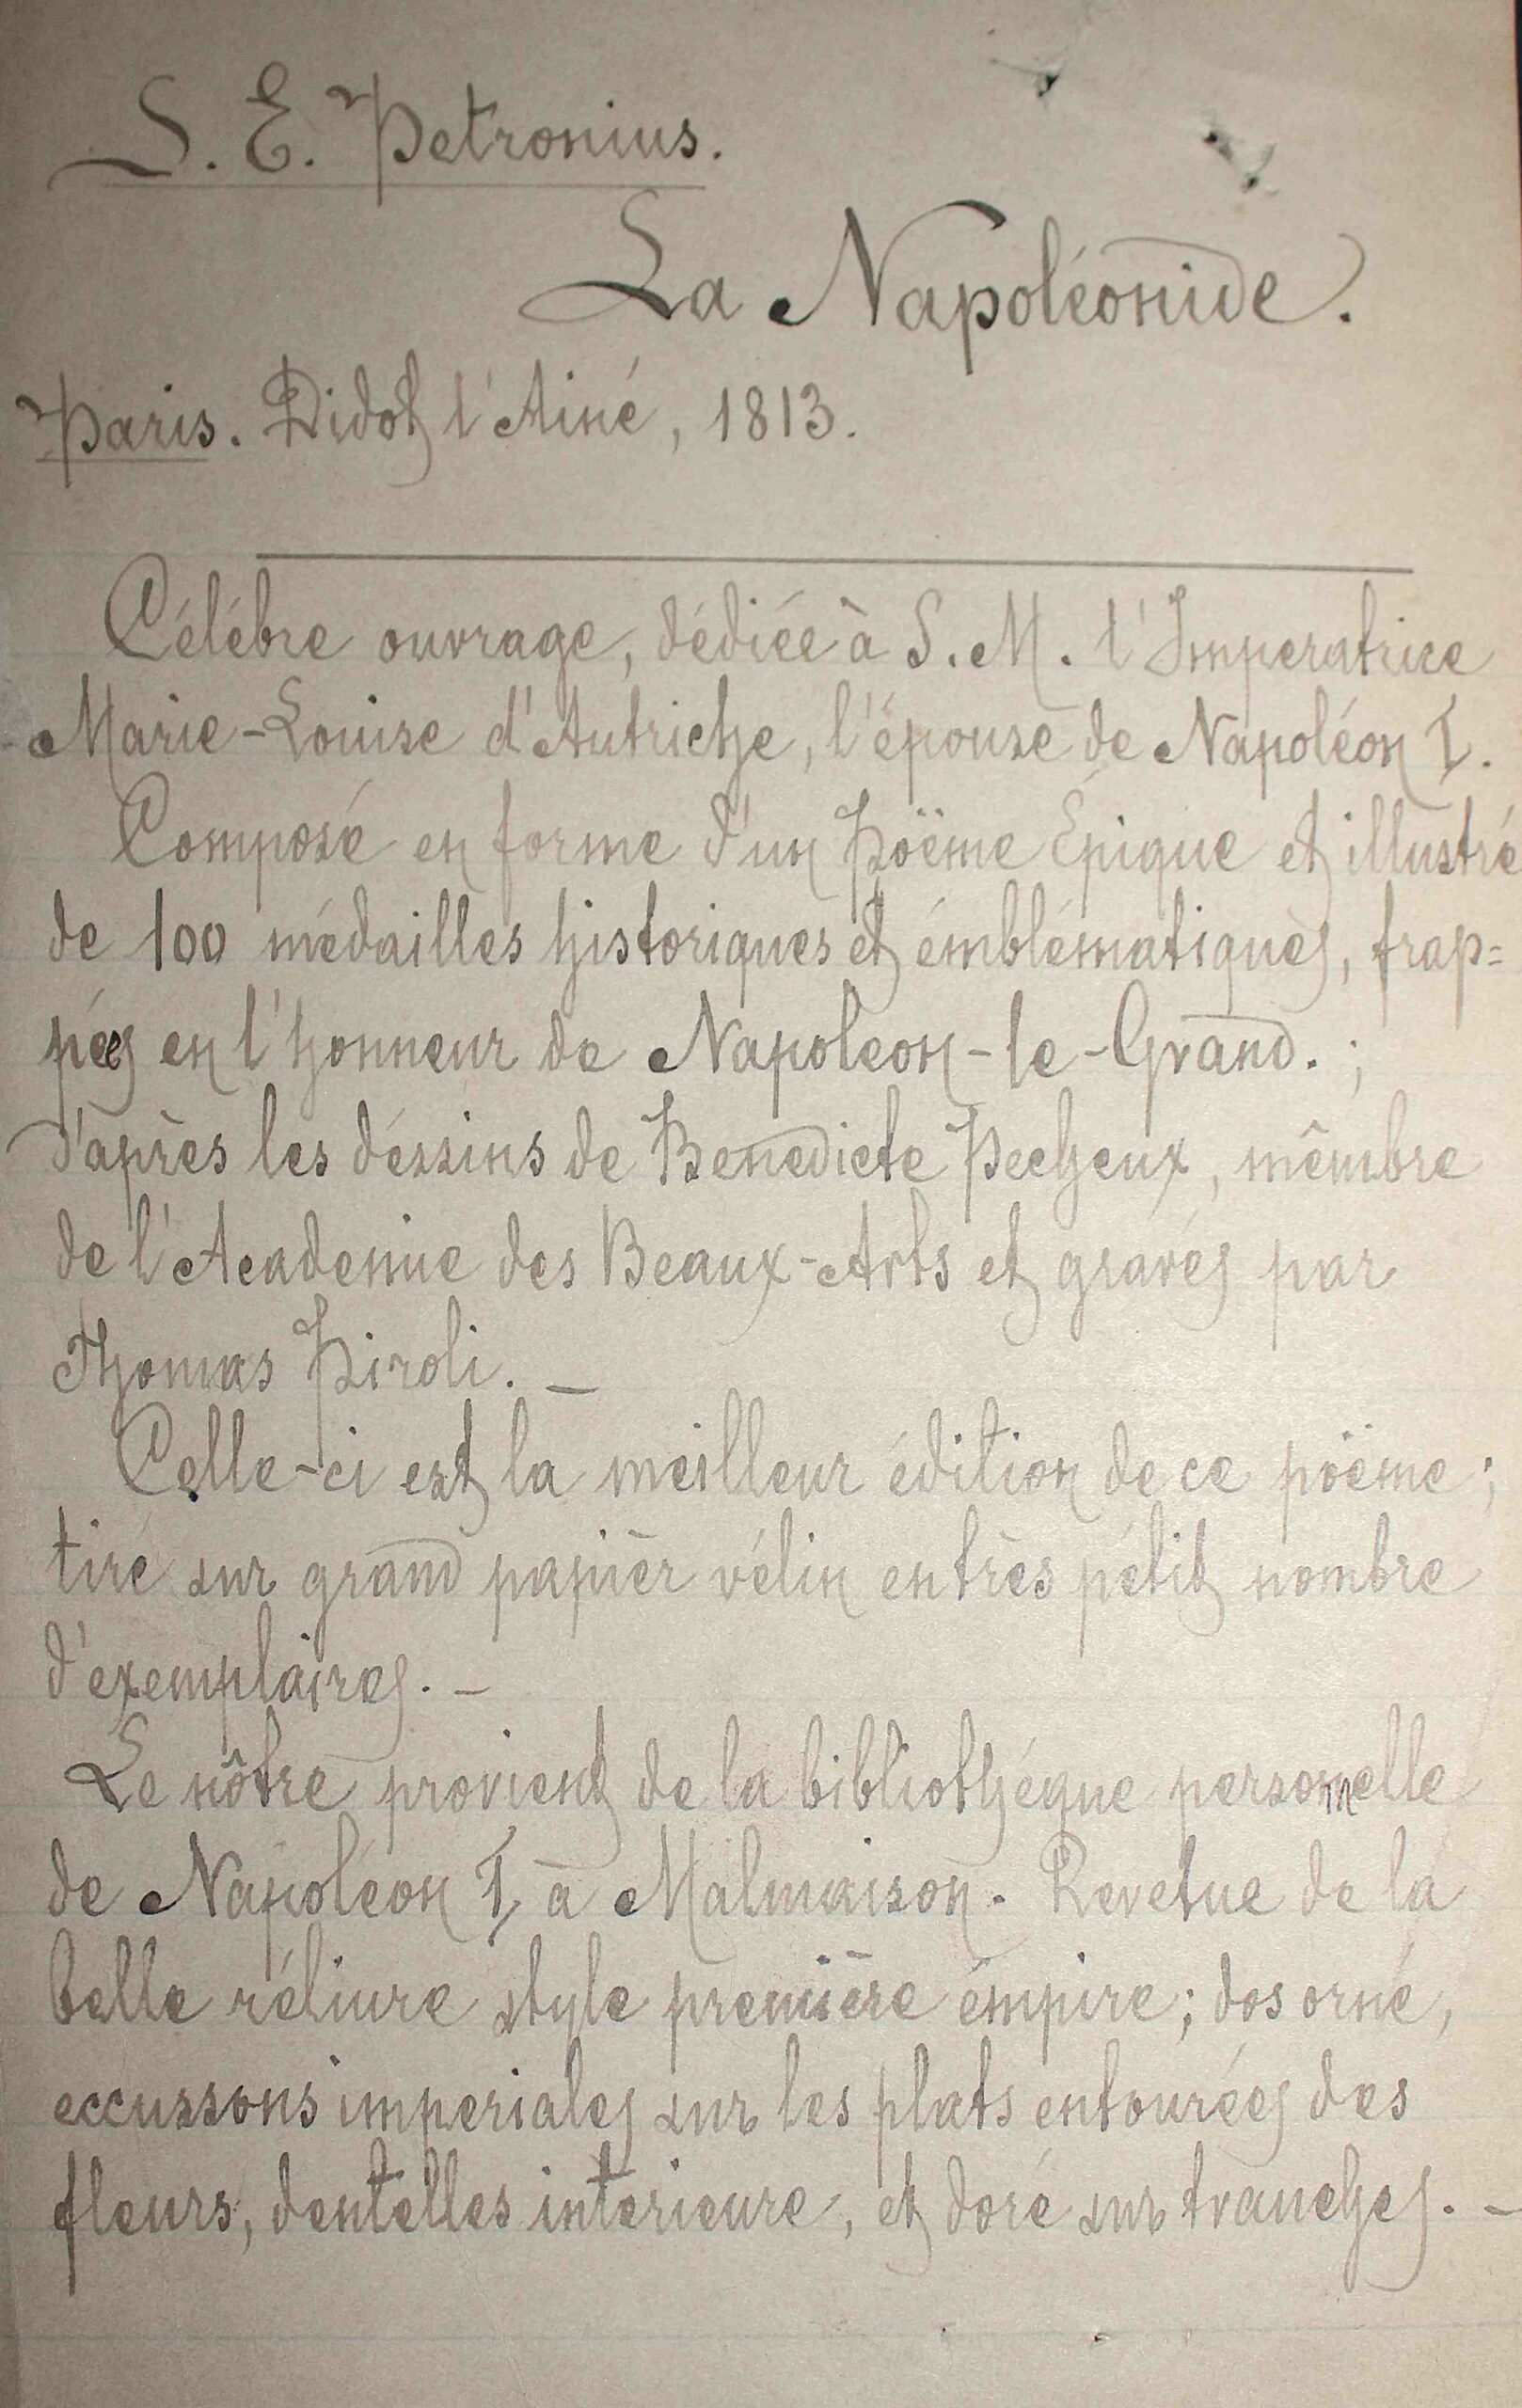 S. E. Petronius.
La Napoléonide.
Paris. Didot l'Ainé, 1813.
Célébre ouvrage, dédiée à S. M. l'Imperatrice
Marie-Louise d'Autriche, l'épouse de Napoléon I.
Composé en forme d'un Pöëme Épique et illustré
de 100 médailles historiques et émblématiques, frap=
pées en l'honneur de Napoleon-le-Grand. ;
d'après les déssins de Benedicte Pecheux, mêmbre
de l'Academie des Beaux-Arts et gravés par
Thomas Piroli. _
Celle-ci est la meilleur édition de ce pöëme ;
tiré sur grand papièr vélin en très pétit nombre
d'exemplaires. -
Le nôtre provient de la bibliothéque personnelle
de Napoléon I, à Malmaison. Revetue de la
belle réliure style première émpire; dos orné,
eccussons imperiales sur les plats entourées des
fleurs, dentelles interieure, et doré sur tranches. -